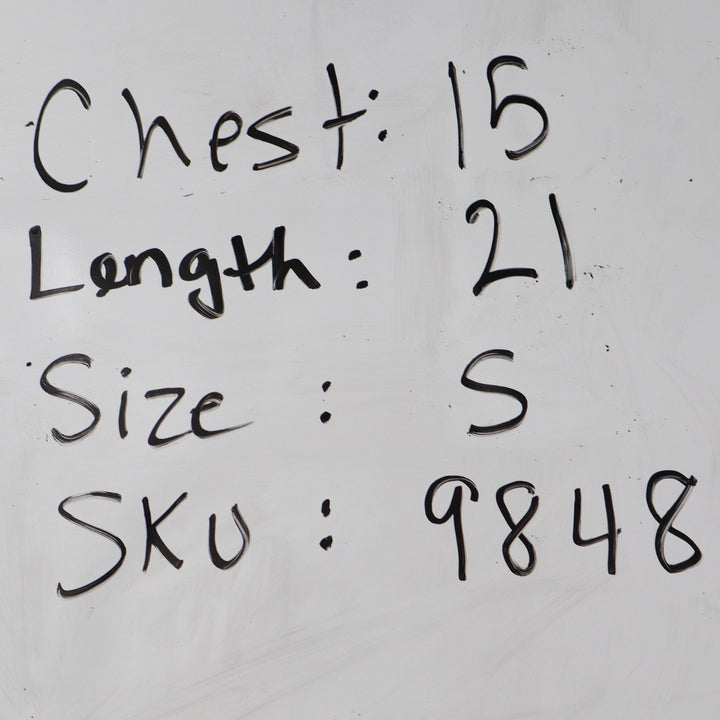 Chest: 15
Length: 21
Size: S
SKU: 9848